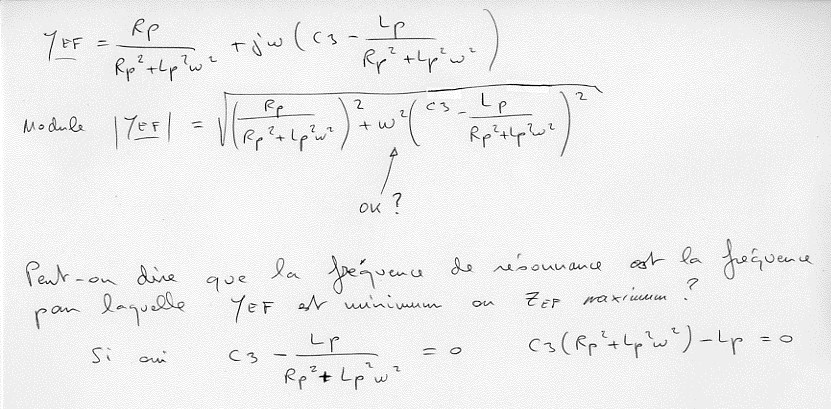 Y_EF = Rp / (Rp² + Lp²ω²) + jω (C3 - Lp / (Rp² + Lp²ω²))
Module |Y_EF| = √((Rp / (Rp² + Lp²ω²))² + ω² (C3 - Lp / (Rp² + Lp²ω²))²)
OK ?
Peut-on dire que la fréquence de résonnance est la fréquence
pour laquelle Y_EF est minimum ou Z_EF maximum ?
Si oui C3 - Lp / (Rp² + Lp²ω²) = 0 C3 (Rp² + Lp²ω²) - Lp = 0